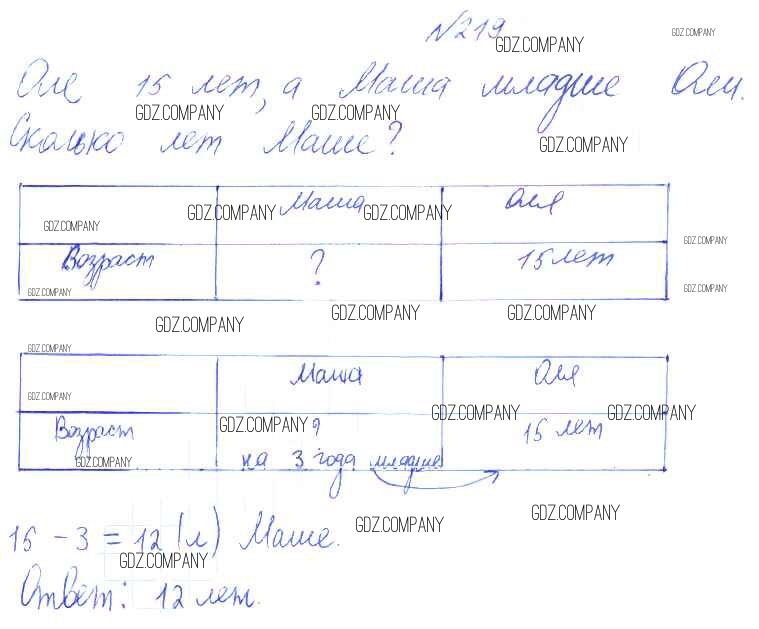 №219
GDZ.COMPANY GDZ.COMPANY
Оле 15 лет, а Маша младше Оли.
GDZ.COMPANY GDZ.COMPANY
Сколько лет Маше?
GDZ.COMPANY
Маша Оля
GDZ.COMPANY GDZ.COMPANY GDZ.COMPANY
GDZ.COMPANY
Возраст ? 15 лет
GDZ.COMPANY GDZ.COMPANY
GDZ.COMPANY GDZ.COMPANY GDZ.COMPANY
GDZ.COMPANY
Маша Оля
GDZ.COMPANY
GDZ.COMPANY GDZ.COMPANY GDZ.COMPANY
Возраст ? 15 лет
GDZ.COMPANY на 3 года младше
15 - 3 = 12 (л) Маше.
GDZ.COMPANY GDZ.COMPANY
GDZ.COMPANY
Ответ: 12 лет.